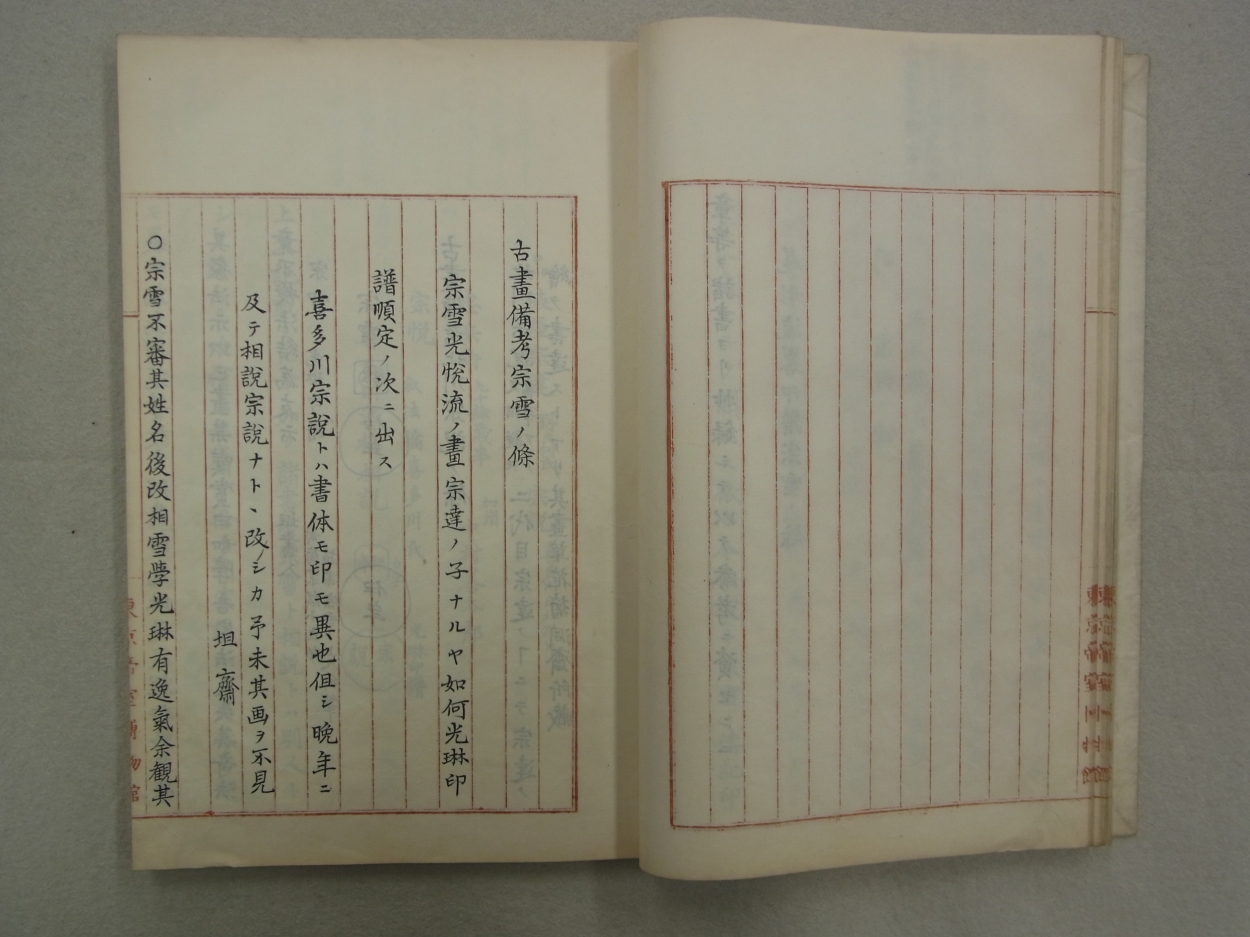 古畫備考宗雪ノ條
宗雪光悅流ノ畫宗達ノ子ナルヤ如何光琳印
譜順定ノ次ニ出ス
喜多川宗説トハ書体モ印モ異也但シ晩年ニ
及テ相説宗説ナト、改シカ予未其画ヲ不見
坦齋
〇宗雪不審其姓名後改相雪學光琳有逸氣余観其
東京帝室博物館